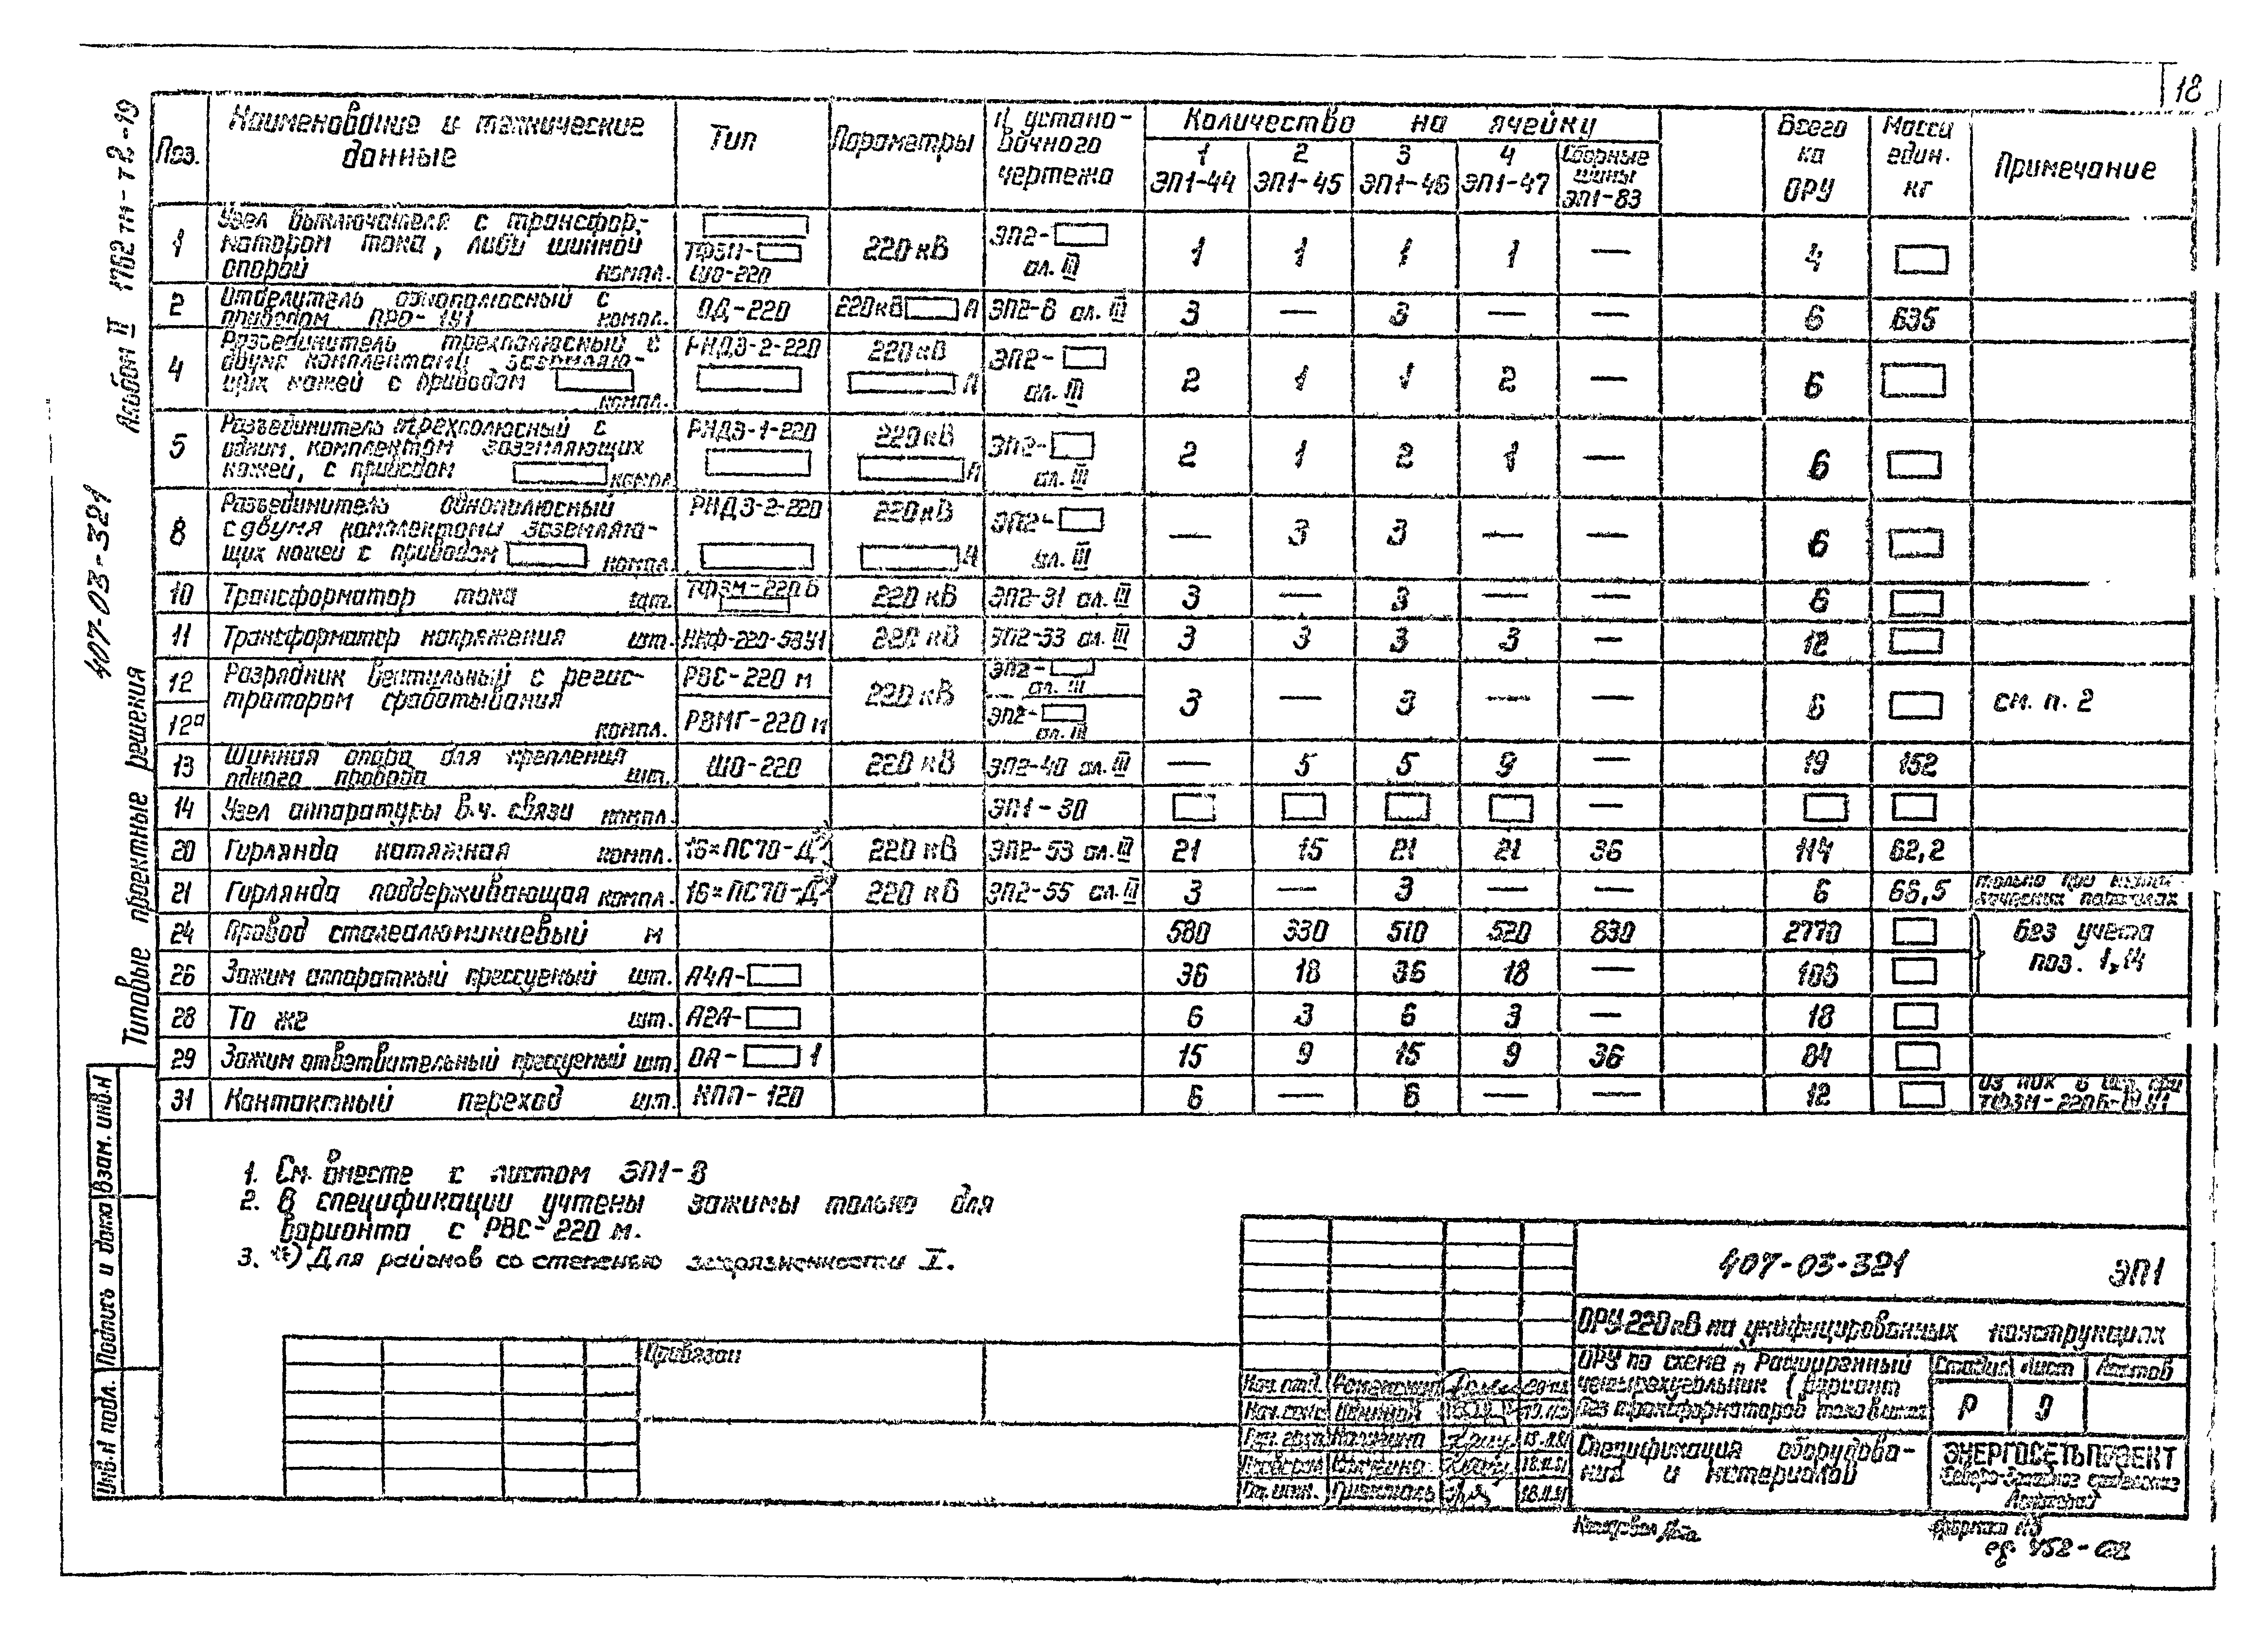 18
Альбом II 1762 тм-т2-19
407-03-321
Типовые проектные решения
Поз. | Наименование и технические данные | Тип | Параметры | N установочного чертежа | Количество на ячейку | Всего на ОРУ | Масса един. кг | Примечание
1 ЭП1-44 | 2 ЭП1-45 | 3 ЭП1-46 | 4 ЭП1-47 | Сборные шины ЭП1-83
1 | Узел выключателя с трансформатором тока, либо шинной опорой компл. | ТФЗМ- ШО-220 | 220 кВ | ЭП2- ал. III | 1 | 1 | 1 | 1 | — | 4
2 | Отделитель однополюсный с приводом ПРО-1У1 компл. | ОД-220 | 220кВ А | ЭП2-8 ал. III | 3 | — | 3 | — | — | 6 | 635
4 | Разъединитель трехполюсный с двумя комплектами заземляющих ножей с приводом компл. | РНДЗ-2-220 | 220 кВ А | ЭП2- ал. III | 2 | 1 | 1 | 2 | — | 6
5 | Разъединитель трехполюсный с одним комплектом заземляющих ножей, с приводом компл. | РНДЗ-1-220 | 220 кВ А | ЭП2- ал. III | 2 | 1 | 2 | 1 | — | 6
8 | Разъединитель однополюсный с двумя комплектами заземляющих ножей с приводом компл. | РНДЗ-2-220 | 220кВ А | ЭП2- ал. III | — | 3 | 3 | — | — | 6
10 | Трансформатор тока шт. | ТФЗМ-220 Б | 220 кВ | ЭП2-31 ал. III | 3 | — | 3 | — | — | 6
11 | Трансформатор напряжения шт. | НКФ-220-58У1 | 220 кВ | ЭП2-33 ал. III | 3 | 3 | 3 | 3 | — | 12
12 | Разрядник вентильный с регистратором срабатывания | РВС-220 м | 220 кВ | ЭП2- ал. III | 3 | — | 3 | — | — | 6 | см. п. 2
12а | компл. | РВМГ-220 м | ЭП2- ал. III
13 | Шинная опора для крепления одного провода шт. | ШО-220 | 220 кВ | ЭП2-40 ал. III | — | 5 | 5 | 9 | — | 19 | 152
14 | Узел аппаратуры в.ч. связи компл. | ЭП1-30 | —
20 | Гирлянда натяжная компл. | 16×ПС70-Д*) | 220 кВ | ЭП2-53 ал. III | 21 | 15 | 21 | 21 | 36 | 114 | 62,2
21 | Гирлянда поддерживающая компл. | 16×ПС70-Д*) | 220 кВ | ЭП2-55 ал. III | 3 | — | 3 | — | — | 6 | 66,5 | только при
24 | Провод сталеалюминиевый м | 580 | 330 | 510 | 520 | 830 | 2770 | без учета
26 | Зажим аппаратный прессуемый шт. | А4А- | 36 | 18 | 36 | 18 | — | 108 | поз. 1,14
28 | То же шт. | А2А- | 6 | 3 | 6 | 3 | — | 18
29 | Зажим ответвительный прессуемый шт. | ОА- 1 | 15 | 9 | 15 | 9 | 36 | 84
31 | Контактный переход шт. | КПП-120 | 6 | — | 6 | — | — | 12 | из них 6 шт. при ТФЗМ-220Б-III У1
1. См. вместе с листом ЭП1-8
2. В спецификации учтены зажимы только для
варианта с РВС-220 м.
3. *) Для районов со степенью загрязненности I.
Взам. инв.N
Подпись и дата
Инв.N подл.
Привязан
407-03-321 ЭП1
ОРУ 220 кВ на унифицированных конструкциях
ОРУ по схеме „Расширенный
четырехугольник (вариант
без трансформаторов тока
Стадия Лист Листов
Р 9
Спецификация оборудования и материалов
ЭНЕРГОСЕТЬПРОЕКТ
Северо-Западное отделение
Ленинград
18.11.81
18.11.81
Копировал
Формат А3